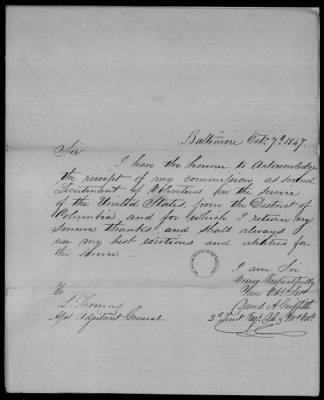 Baltimore Oct. 7th 1847.
Sir
I have the honour to Acknowledge
the receipt of my commission, as second
Lieutenant of Volunteers for the service
of the United States, from the District of
Columbia, and for which I return my
sincere thanks, and shall always
use my best exertions and abilities for
the service
I am Sir
Very Respectfully
Your Obdt Svt
David A. Griffith
2d Lieut Regt
To
L. Thomas
Asst Adjutant General.